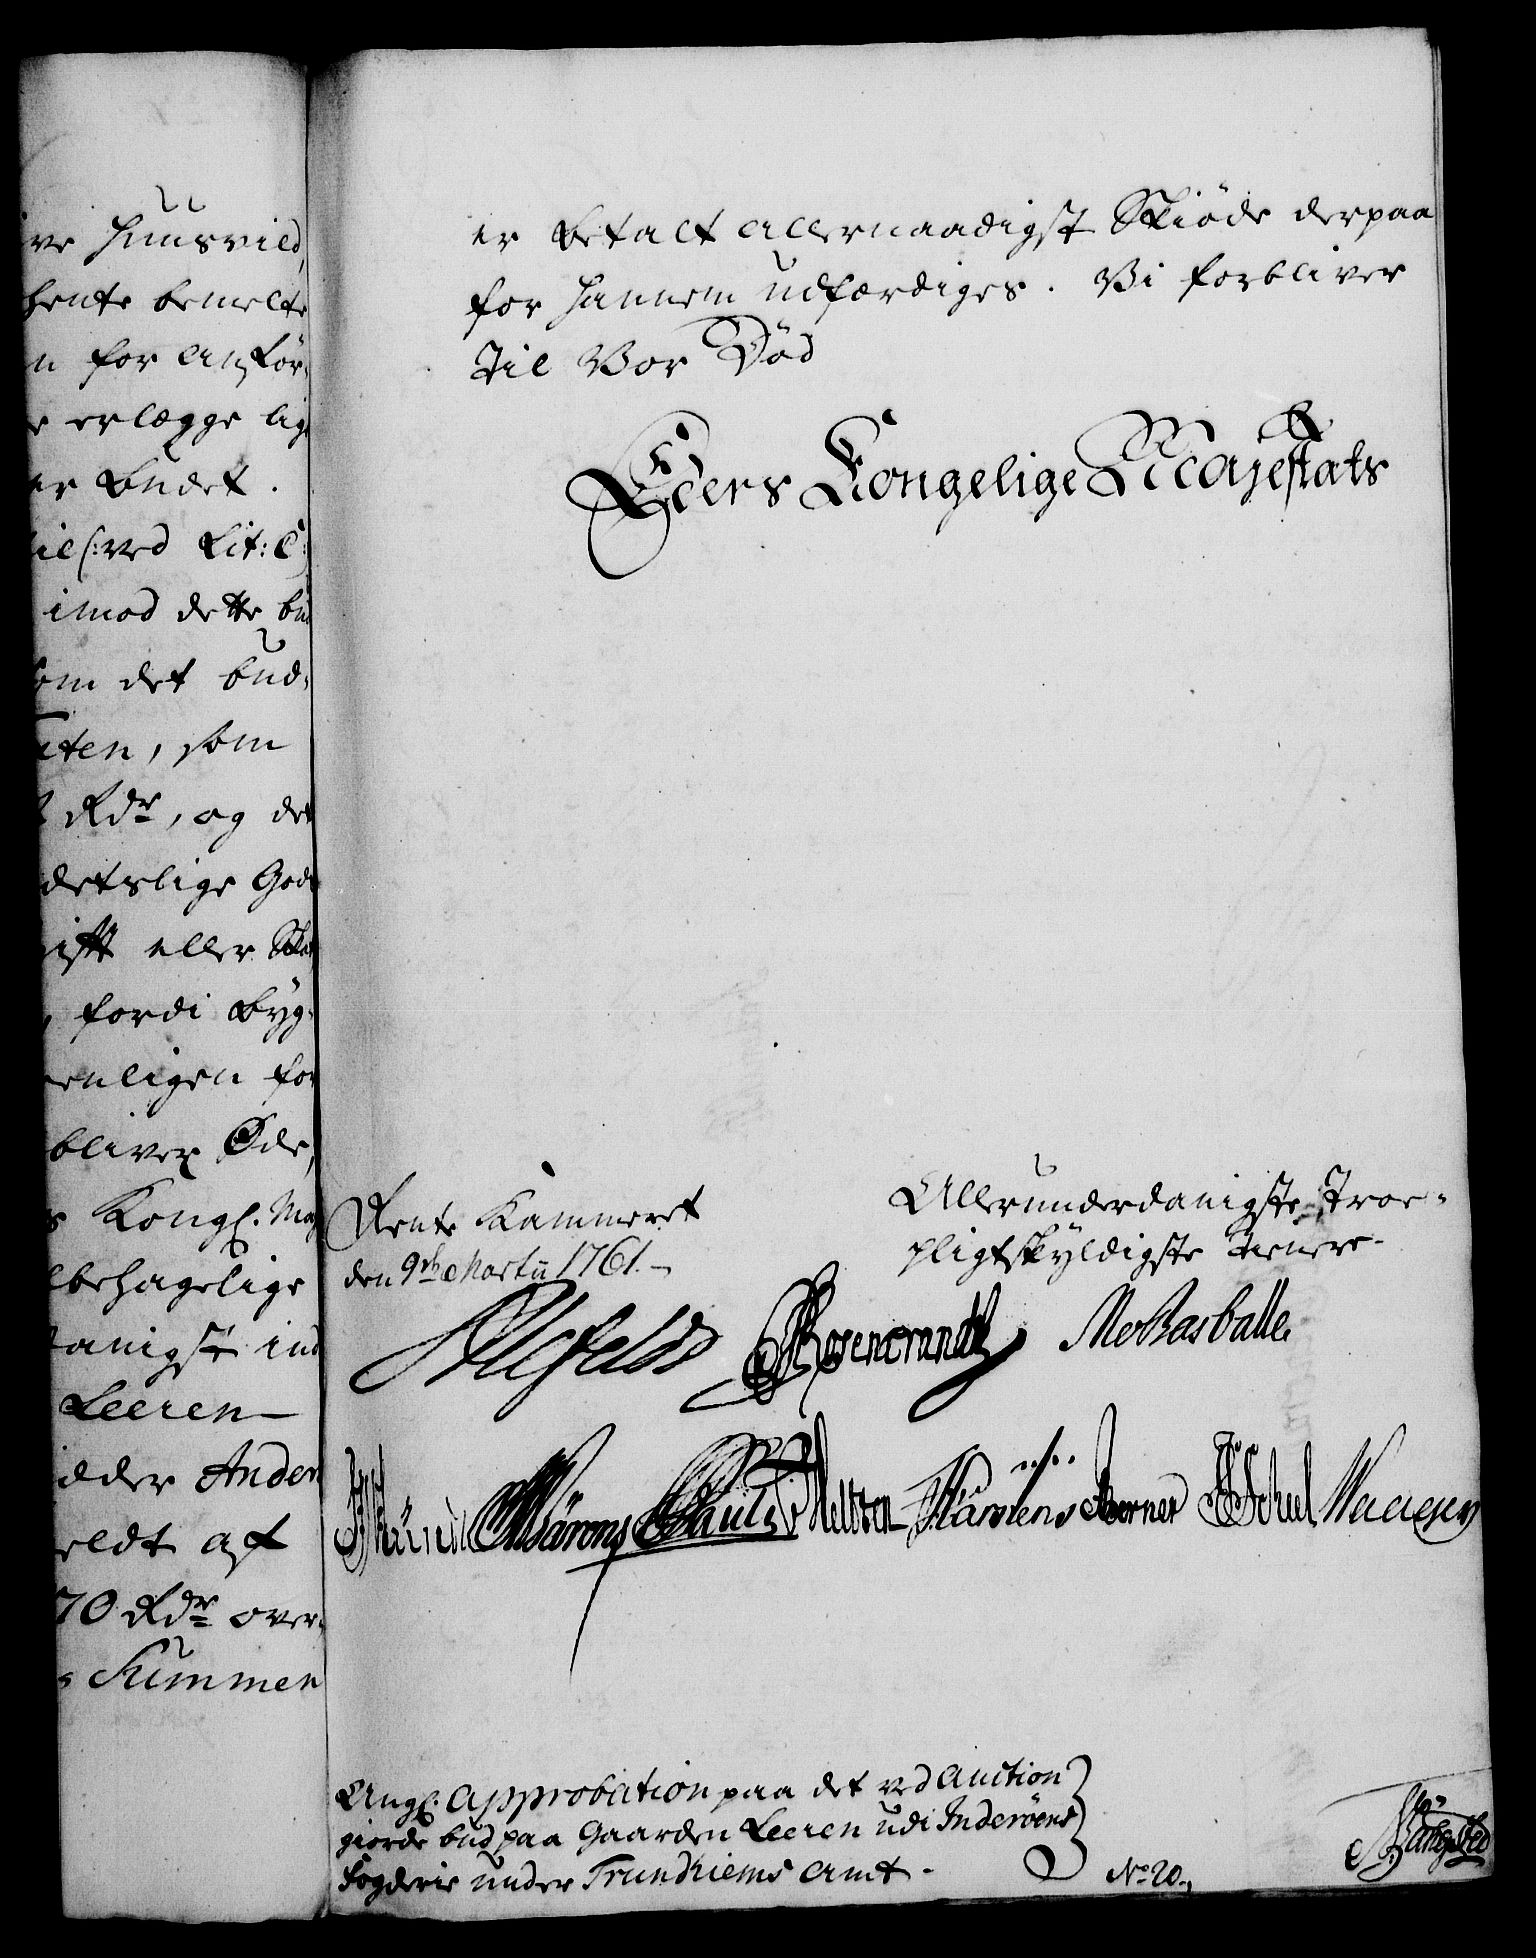 ve Huusvild,
hente bemelte
n for anför-
e erlægge lige
er budet.
til (:ved Lit: C:)
imod dette bud
som det bud-
ten, som
Rdr, og det
detslige Gods
gift eller Skat
, fordi Byg-
enligen for
bliver Øde,
s Kongl. May
lbehagelige
danigst ind
Leeren
idder Anders
eldt af
70 Rdr over-
Summen
er betalt allernaadigst Skiöde derpaa
for hannem udfærdiges. Vi forbliver
til Vor Död
Eders Kongelige Majestæts
Rente Kammeret
den 9de Martii 1761.
Allerunderdanigste Troe-
pligtskyldigste Tienere.
Ahlefeldt Rosencrantz Barballe
Paulsen Karstens Berner Scheel Waagen
Angl. Approbation paa det ved Auction
giorde bud paa Gaarden Leeren udi Inderöens
Fogderie under Trundhiems Amt.
No 20.